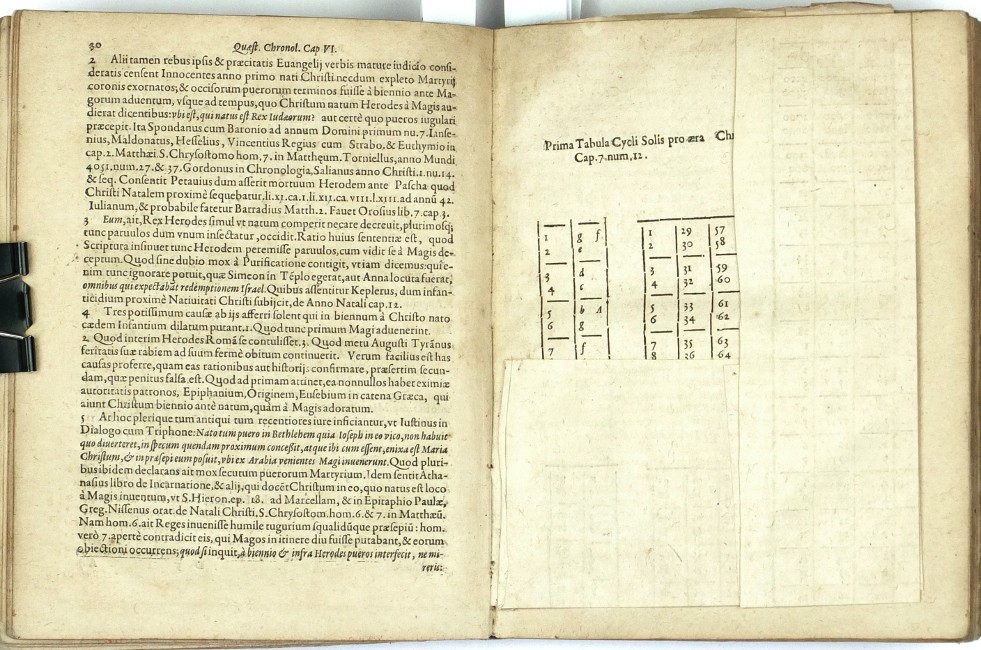 30 Quæst. Chronol. Cap VI.
2 Alii tamen rebus ipsis & præcitatis Euangelij verbis mature iudicio consi-
deratis censent Innocentes anno primo nati Christi necdum expleto Martyrij
coronis exornatos; & occisorum puerorum terminos fuisse à biennio ante Ma-
gorum aduentum, vsque ad tempus, quo Christum natum Herodes à Magis au-
dierat dicentibus: vbi est, qui natus est Rex Iudæorum? aut certè quo pueros iugulari
præcepit. Ita Spondanus cum Baronio ad annum Domini primum nu. 7. Ianse-
nius, Maldonatus, Hesselius, Vincentius Regius cum Strabo. & Euthymio in
cap. 2. Matthæi S. Chrysostomo hom. 7. in Matthęum. Torniellus, anno Mundi
4051. num. 27. & 37. Gordonus in Chronologia, Salianus anno Christi. 1. nu. 14.
& seq. Consentit Petauius dum asserit mortuum Herodem ante Pascha quod
Christi Natalem proximè sequebatur. li. xi. ca. 1. li. xi. ca. VIII. l. XIII. ad annū 42.
Iulianum, & probabile fatetur Barradius Matth. 2. Fauet Orosius lib. 7. cap 3.
3 Eum, ait, Rex Herodes simul vt natum comperit necare decreuit, plurimosq;
tunc paruulos dum vnum insectatur, occidit. Ratio huius sententiæ est, quod
Scriptura insinuet tunc Herodem peremisse paruulos, cum vidit se à Magis de-
ceptum. Quod sine dubio mox à Purificatione contigit, vt iam dicemus: quíe-
nim tunc ignorare potuit, quæ Simeon in Tēplo egerat, aut Anna locuta fuerat,
omnibus qui expectabāt redemptionem Israel. Quibus assentitur Keplerus, dum infan-
ticidium proximè Natiuitati Christi subijcit, de Anno Natali cap. 12.
4 Tres potissimum causæ ab ijs afferri solent qui in biennum à Christo nato
cædem Infantium dilatum putant. 1. Quod tunc primum Magi aduenerint.
2. Quod interim Herodes Romā se contulisset. 3. Quod metu Augusti Tyrānus
feritatis suæ rabiem ad suum fermè obitum continuerit. Verum facilius est has
causas proferre, quam eas rationibus aut historij: confirmare, præsertim secun-
dam, quæ penitus falsa est. Quod ad primam attinet, ea nonnullos habet eximiæ
autoritatis patronos, Epiphanium, Originem, Eusebium in catena Græca, qui
aiunt Christum biennio antè natum, quàm à Magis adoratum.
5 At hoc plerique tum antiqui tum recentiores iure inficiantur, vt Iustinus in
Dialogo cum Triphone: Nato tum puero in Bethlehem quia Ioseph in eo vico, non habuit
quo diuerteret, in specum quendam proximum concessit, atque ibi cum essent, enixa est Maria
Christum, & in præsepi eum posuit, vbi ex Arabia venientes Magi inuenerunt. Quod pluri-
bus ibidem declarans ait mox secutum puerorum Martyrium. Idem sentit Atha-
nasius libro de Incarnatione, & alij, qui docēt Christum in eo, quo natus est loco
à Magis inuentum, vt S. Hieron. ep. 18. ad Marcellam, & in Epitaphio Paulæ,
Greg. Nissenus orat. de Natali Christi, S. Chrysostom. hom. 6. & 7. in Matthæū.
Nam hom. 6. ait Reges inuenisse humile tugurium squalidūque præsepiū: hom.
verò 7. apertè contradicit eis, qui Magos in itinere diu fuisse putabant, & eorum
obiectioni occurrens; quod si inquit, à biennio & infra Herodes pueros interfecit, ne mi-
reris:
Prima Tabula Cycli Solis pro æra Chr
Cap. 7. num, 12.
1 g f 1 29 57
2 e 2 30 58
3 d 3 31 59
4 c 4 32 60
5 b A 5 33 61
6 g 6 34 62
7 f 7 35 63
8 36 64